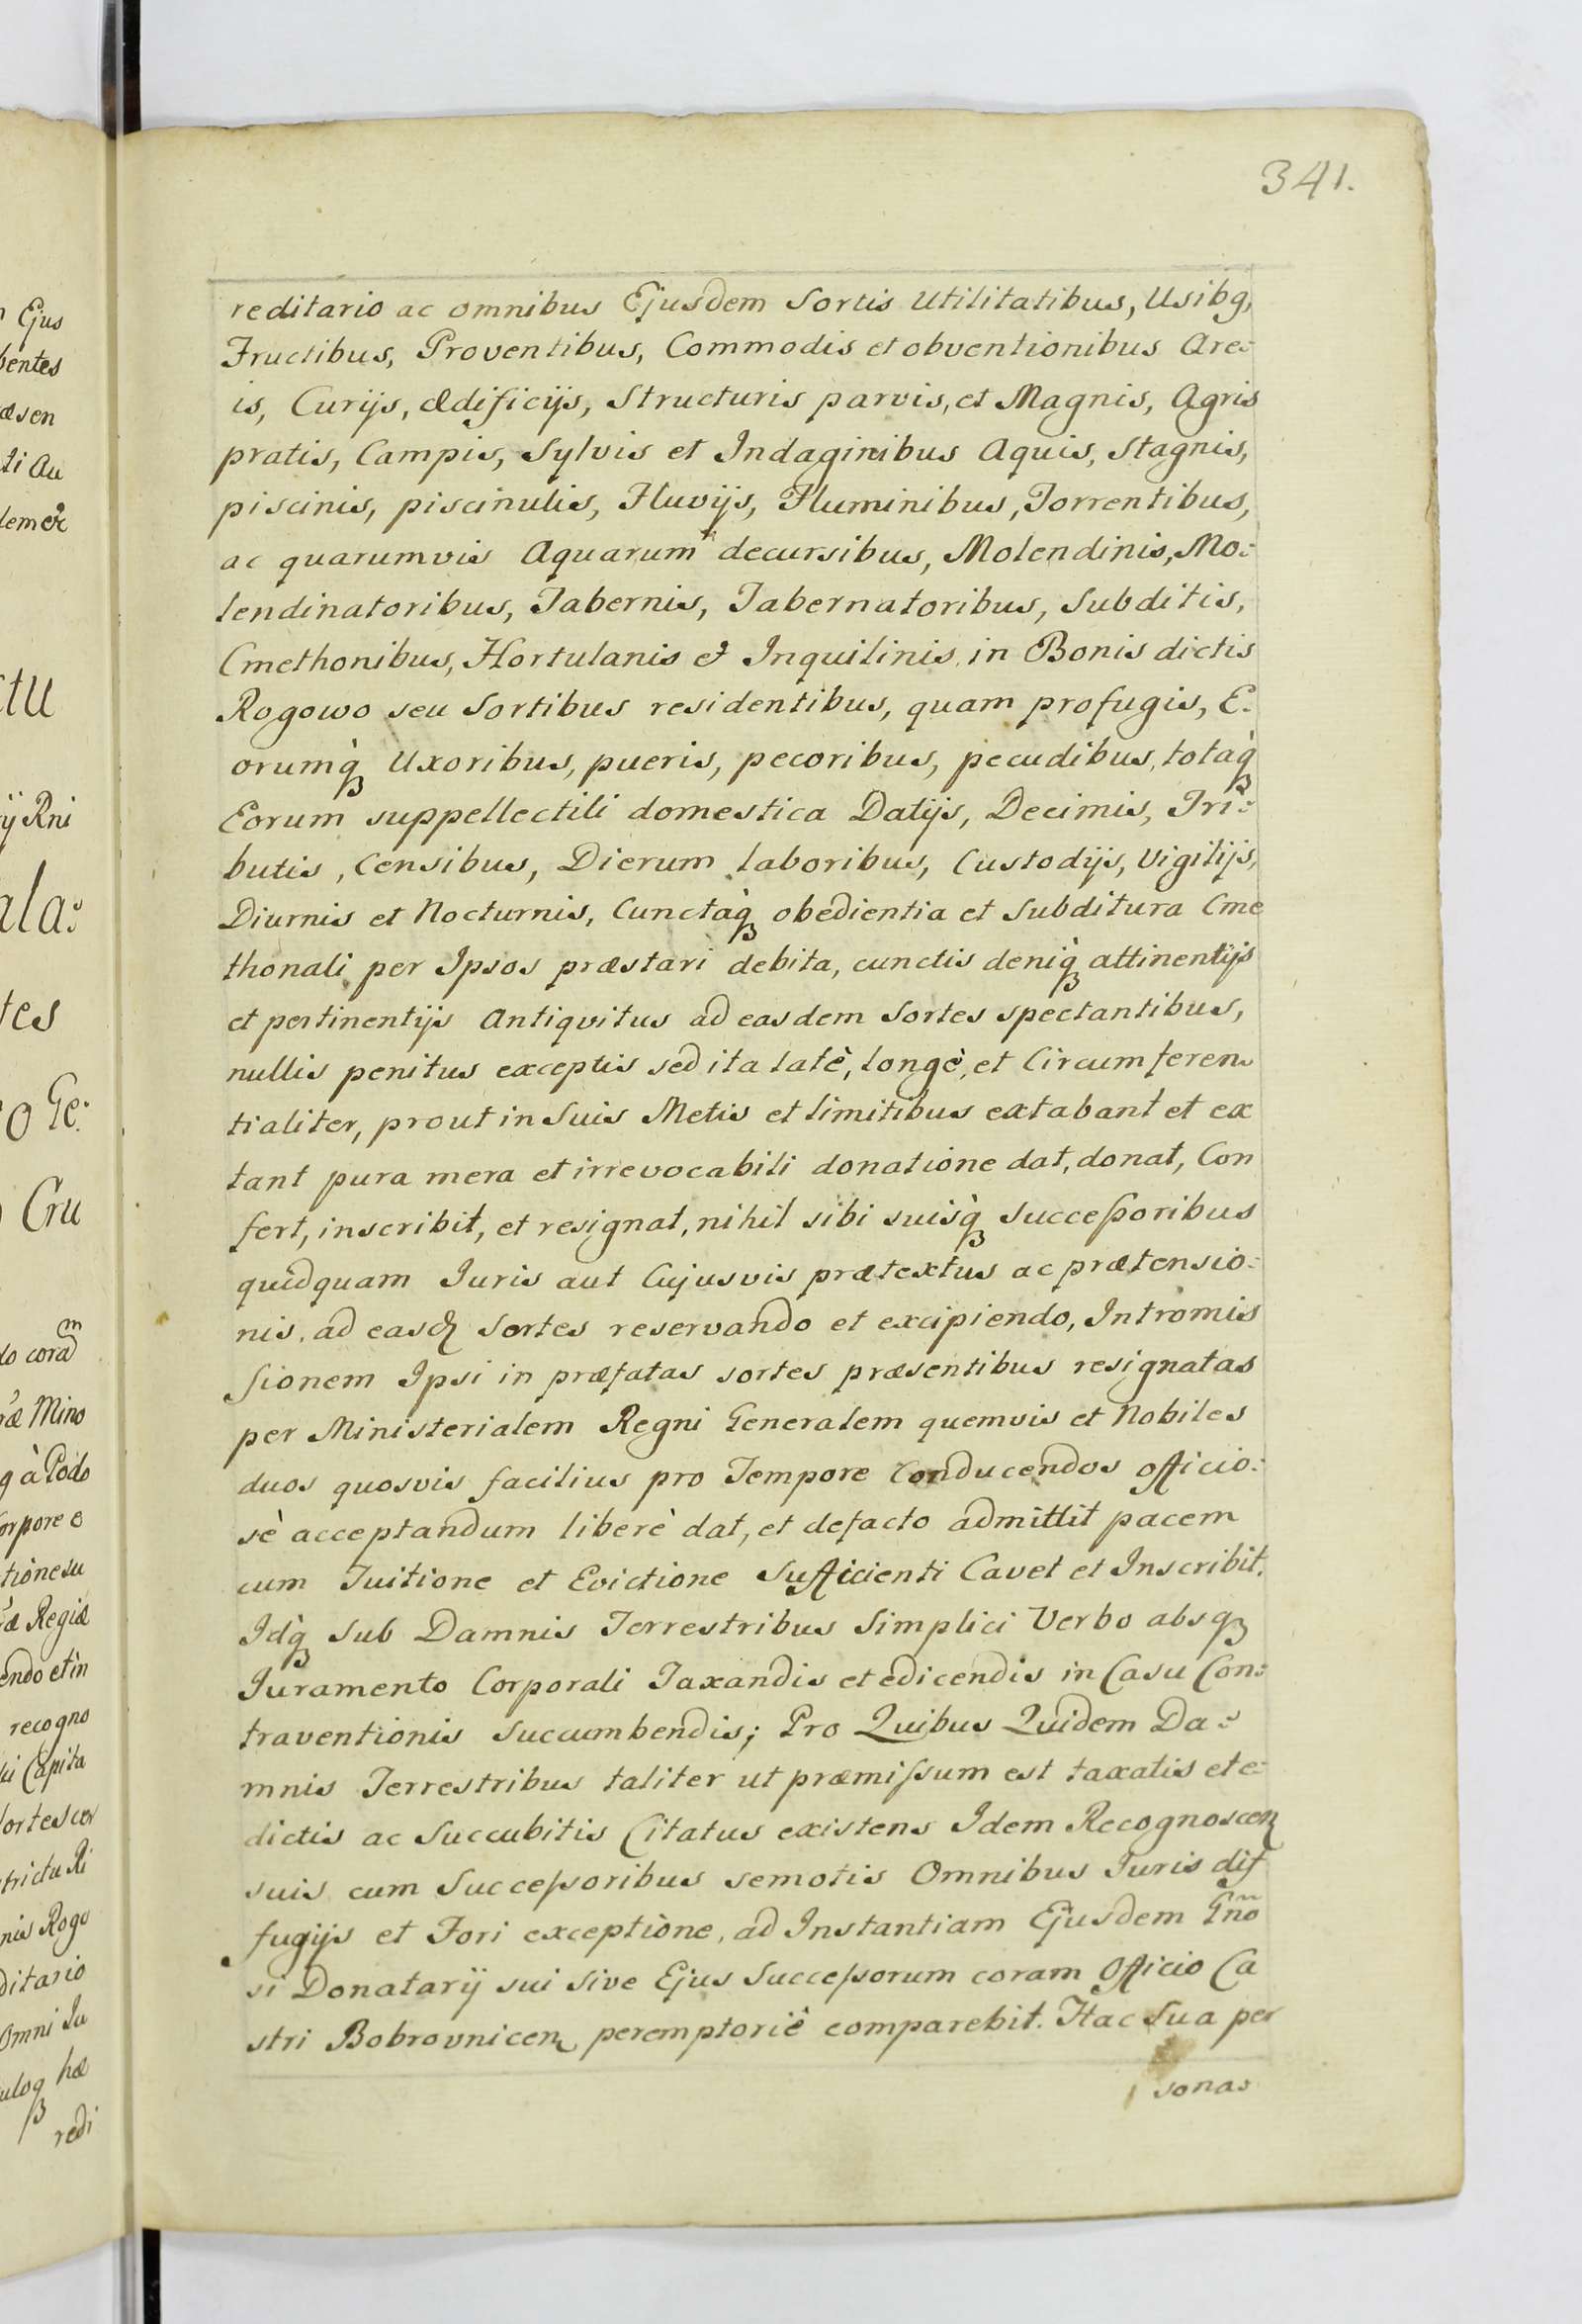 341.
reditario ac omnibus Ejusdem Sortis Utilitatibus, Usibq,
Fructibus, Proventibus, Commodis et obventionibus Are=
is, Curijs, Ædificijs, Structuris parvis, et Magnis, Agris
pratis, Campis, Sylvis et Indaginibus Aquis, Stagnis,
piscinis, piscinulis, Fluvijs, Fluminibus, Torrentibus,
ac quarumvis Aquarum decursibus, Molendinis, Mo=
lendinatoribus, Tabernis, Tabernatoribus, Subditis,
Cmethonibus, Hortulanis et Inquilinis in Bonis dictis
Rogowo seu Sortibus residentibus, quam profugis, E=
orumq̀ Uxoribus, pueris, pecoribus, pecudibus, totaq̀
Eorum suppellectili domestica Datijs, Decimis, Tri=
butis, Censibus, Dierum laboribus, Custodijs, Vigilijs,
Diurnis et Nocturnis, Cunctaq̀ obedientia et Subditura Cme
thonali per Ipsos præstari debita, cunctis deniq̀ attinentijs
et pertinentijs Antiqvitus ad easdem Sortes spectantibus,
nullis penitus exceptis sed ita latè, longè, et Circumferen=
tialiter, prout in Suis Metis et limitibus extabant et ex
tant pura mera et irrevocabili donatione dat, donat, Con
fert, inscribit, et resignat, nihil sibi suisq̀ Succeſsoribus
quidquam Iuris aut Cujusvis prætextus ac prætensio=
nis, ad easđ Sortes reservando et excipiendo, Intromis
Sionem Ipsi in præfatas sortes præsentibus resignatas
per Ministerialem Regni Generalem quemvis et Nobiles
duos quosvis facilius pro Tempore Conducendos officio=
sè acceptandum liberè dat, et defacto admittit pacem
cum Tuitione et Evictione Sufficienti Cavet et Inscribit.
Idq̀ Sub Damnis Terrestribus Simplici Verbo absqꝫ
Juramento Corporali Taxandis et edicendis in Casu Con=
traventionis Succumbendis; Pro Quibus Quidem Da=
mnis Terrestribus taliter ut præmiſsum est taxatis et e=
dictis ac Succubitis Citatus existens Idem Recognoscen
suis cum Succeſsoribus semotis Omnibus Iuris dif
fugijs et Fori exceptione, ad Instantiam Ejusdem Gn̄o
si Donatarij sui Sive Ejus Succeſsorum coram Officio Ca
stri Bobrovnicen peremptoriè comparebit. Hac Sua per
sona=